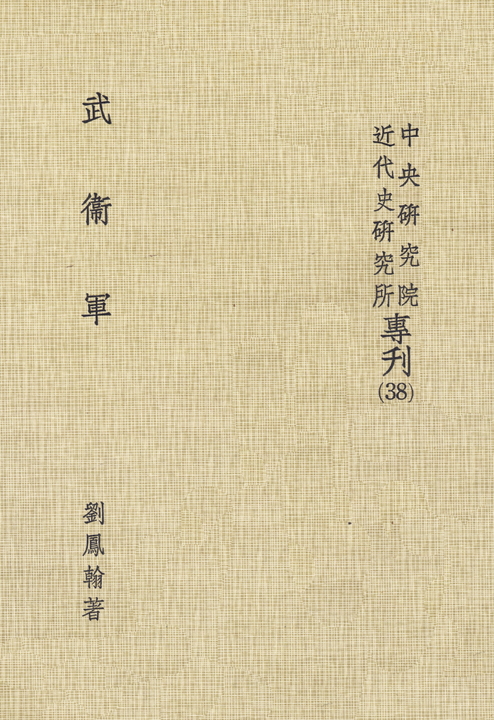 中央研究院
近代史研究所
專刊(38)
武衞軍
劉鳳翰著